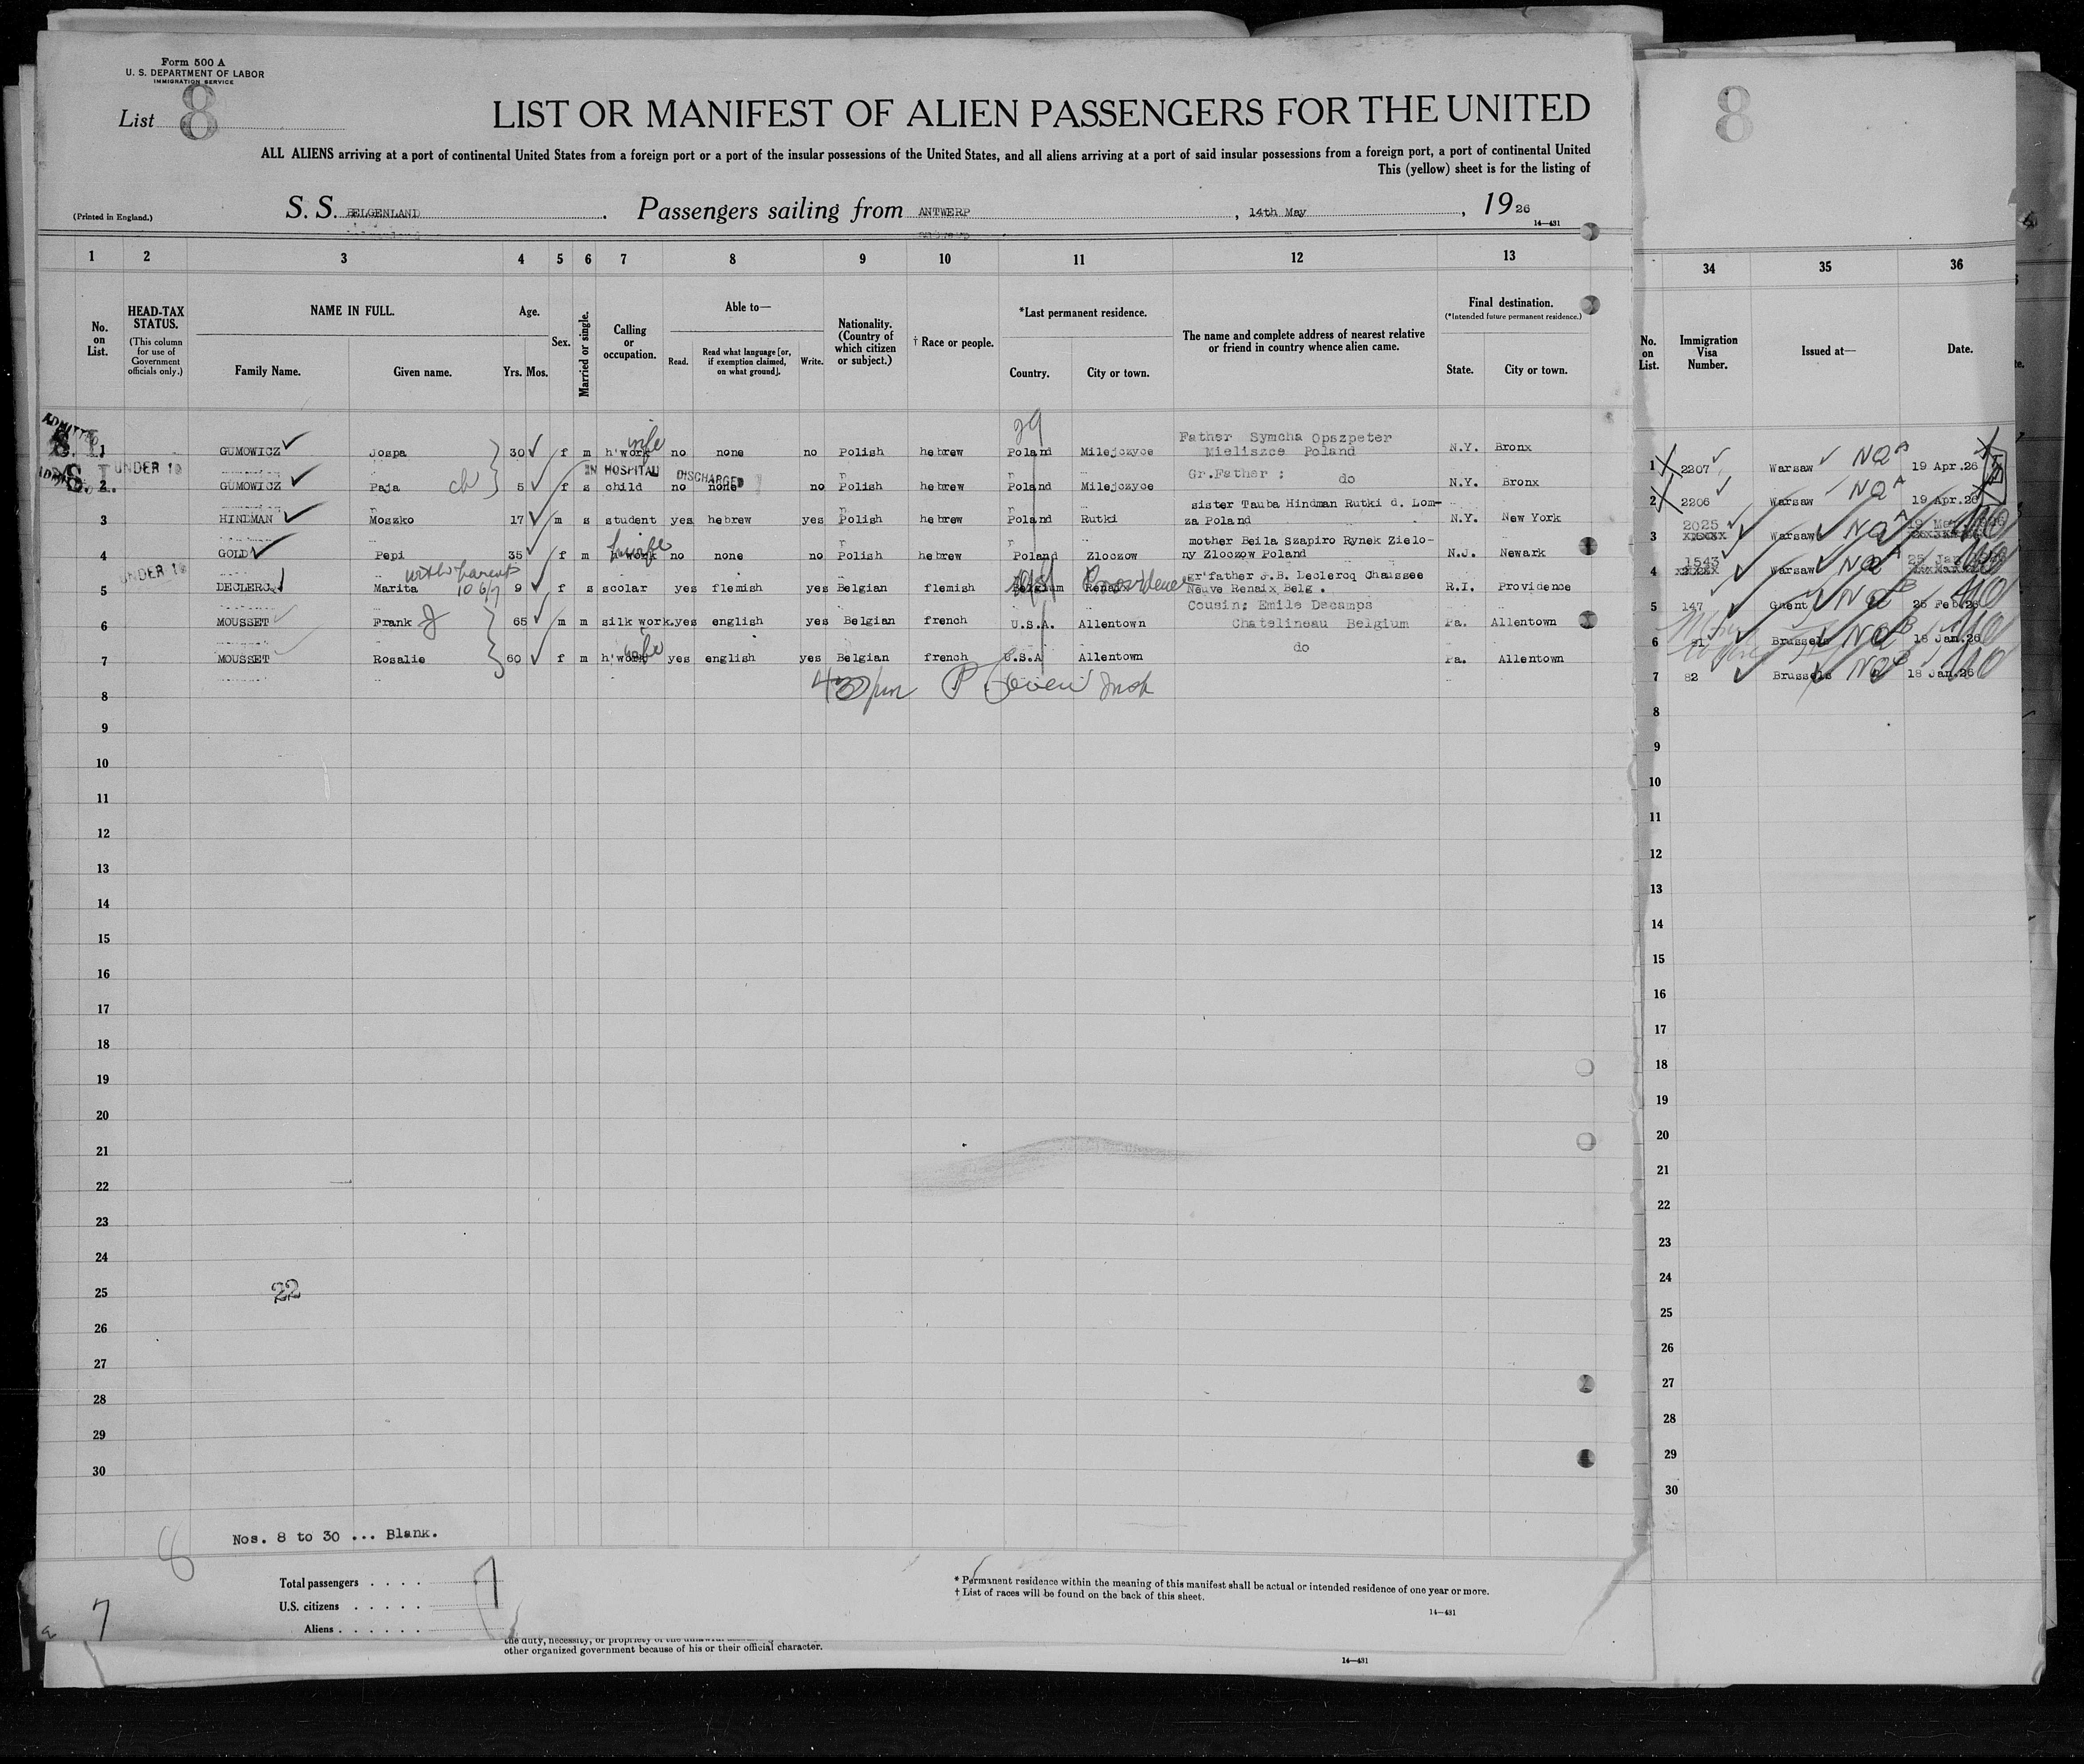 Form 500 A
U. S. DEPARTMENT OF LABOR
IMMIGRATION SERVICE
List 8
8
LIST OR MANIFEST OF ALIEN PASSENGERS FOR THE UNITED
ALL ALIENS arriving at a port of continental United States from a foreign port or a port of the insular possessions of the United States, and all aliens arriving at a port of said insular possessions from a foreign port, a port of continental United
This (yellow) sheet is for the listing of
(Printed in England.)
S. S. BELGENLAND . Passengers sailing from ANTWERP , 14th May , 19 26
14—431
1 2 3 4 5 6 7 8 9 10 11 12 13 34 35 36
No. on List.
HEAD-TAX STATUS.
(This column for use of Government officials only.)
NAME IN FULL.
Family Name. Given name.
Age.
Yrs. Mos.
Sex.
Married or single.
Calling or occupation.
Able to—
Read. Read what language [or, if exemption claimed, on what ground]. Write.
Nationality. (Country of which citizen or subject.)
† Race or people.
*Last permanent residence.
Country. City or town.
The name and complete address of nearest relative or friend in country whence alien came.
Final destination.
(*Intended future permanent residence.)
State. City or town.
No. on List.
Immigration Visa Number.
Issued at—
Date.
ADMITTED
S.I.
29
1 GUMOWICZ Jospa 30 f m h'work wife no none no Polish hebrew Poland Milejczyce Father Symcha Opszpeter Mieliszce Poland N.Y. Bronx 1 2207 Warsaw NQA 19 Apr.26
S.I. UNDER 16 IN HOSPITAL DISCHARGED
2 GUMOWICZ Paja ch 5 f s child no none no Polish hebrew Poland Milejczyce Gr.Father ; do N.Y. Bronx 2 2206 Warsaw NQA 19 Apr.26
3 HINDMAN Moszko 17 m s student yes hebrew yes Polish hebrew Poland Rutki sister Tauba Hindman Rutki d. Lom-za Poland N.Y. New York 3 2025 Warsaw NQA
4 GOLD Pepi 35 f m h'work no none no Polish hebrew Poland Zloczow mother Beila Szapiro Rynek Zielo-ny Zloczow Poland N.J. Newark 4 1543 Warsaw NQA
UNDER 16 with parents
5 DECLERCQ Marita 9 f s scolar yes flemish yes Belgian flemish Belgium Renaix Providence gr'father J.B. Leclercq Chaussee Neuve Renaix Belg . R.I. Providence 5 147 Ghent NQB 25 Feb.26
6 MOUSSET Frank J 65 m m silk work. yes english yes Belgian french U.S.A. Allentown Cousin; Emile Decamps Chatelineau Belgium Pa. Allentown 6 81 Brussels NQB 18 Jan.26
7 MOUSSET Rosalie 60 f m h'work wife yes english yes Belgian french U.S.A Allentown do Pa. Allentown 7 82 Brussels NQB 18 Jan.26
8 8
9 9
10 10
11 11
12 12
13 13
14 14
15 15
16 16
17 17
18 18
19 19
20 20
21 21
22 22
23 23
24 24
25 22 25
26 26
27 27
28 28
29 29
30 30
Nos. 8 to 30 ... Blank.
8
Total passengers . . . . 7
U.S. citizens . . . . .
Aliens . . . . . .
7
* Permanent residence within the meaning of this manifest shall be actual or intended residence of one year or more.
† List of races will be found on the back of this sheet.
14—431
other organized government because of his or their official character.
14—431